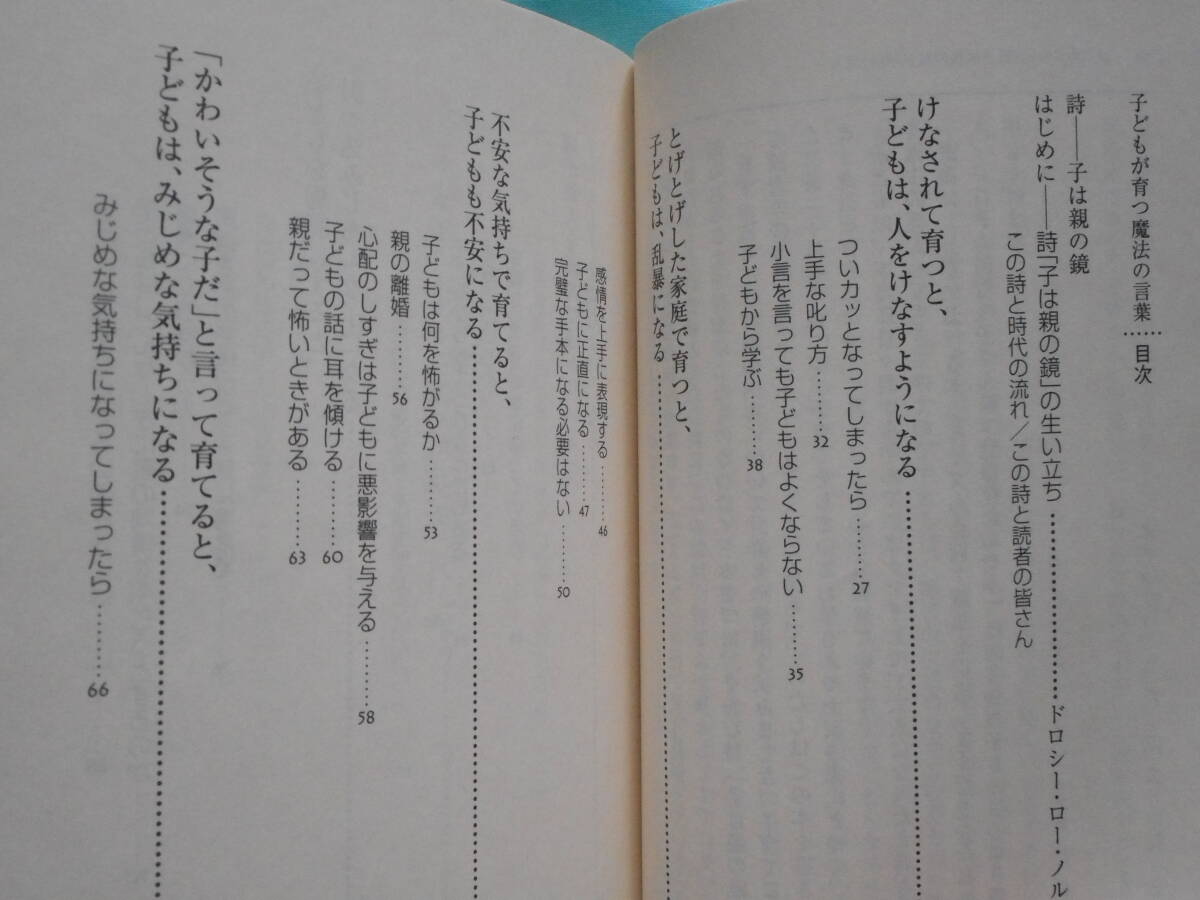 子どもが育つ魔法の言葉……目次
詩――子は親の鏡
はじめに――詩「子は親の鏡」の生い立ち………………ドロシー・ロー・ノル
この詩と時代の流れ／この詩と読者の皆さん
けなされて育つと、
子どもは、人をけなすようになる………………
ついカッとなってしまったら………27
上手な叱り方………32
小言を言っても子どもはよくならない………35
子どもから学ぶ………38
とげとげした家庭で育つと、
子どもは、乱暴になる………………
感情を上手に表現する………46
子どもに正直になる………47
完璧な手本になる必要はない………50
不安な気持ちで育てると、
子どもも不安になる………………
子どもは何を怖がるか………53
親の離婚………56
心配のしすぎは子どもに悪影響を与える………58
子どもの話に耳を傾ける………60
親だって怖いときがある………63
「かわいそうな子だ」と言って育てると、
子どもは、みじめな気持ちになる………………
みじめな気持ちになってしまったら………66